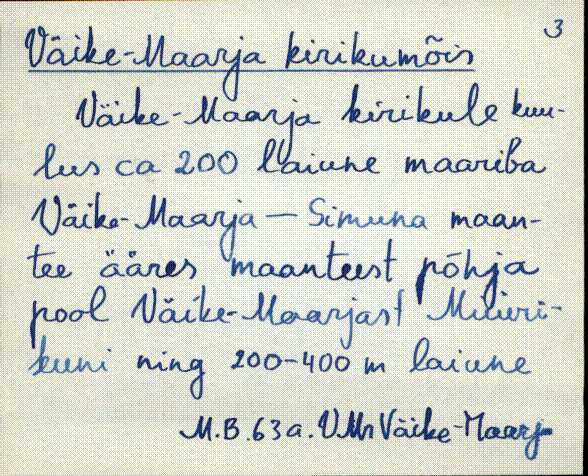 3
Väike-Maarja kirikumõis
Väike-Maarja kirikule kuu-
lus ca 200 laiune maariba
Väike-Maarja — Simuna maan-
tee ääres maanteest põhja
pool Väike-Maarjast Müüri-
kuni ning 200-400 m laiune
M.B. 63 a. VMr Väike-Maarj